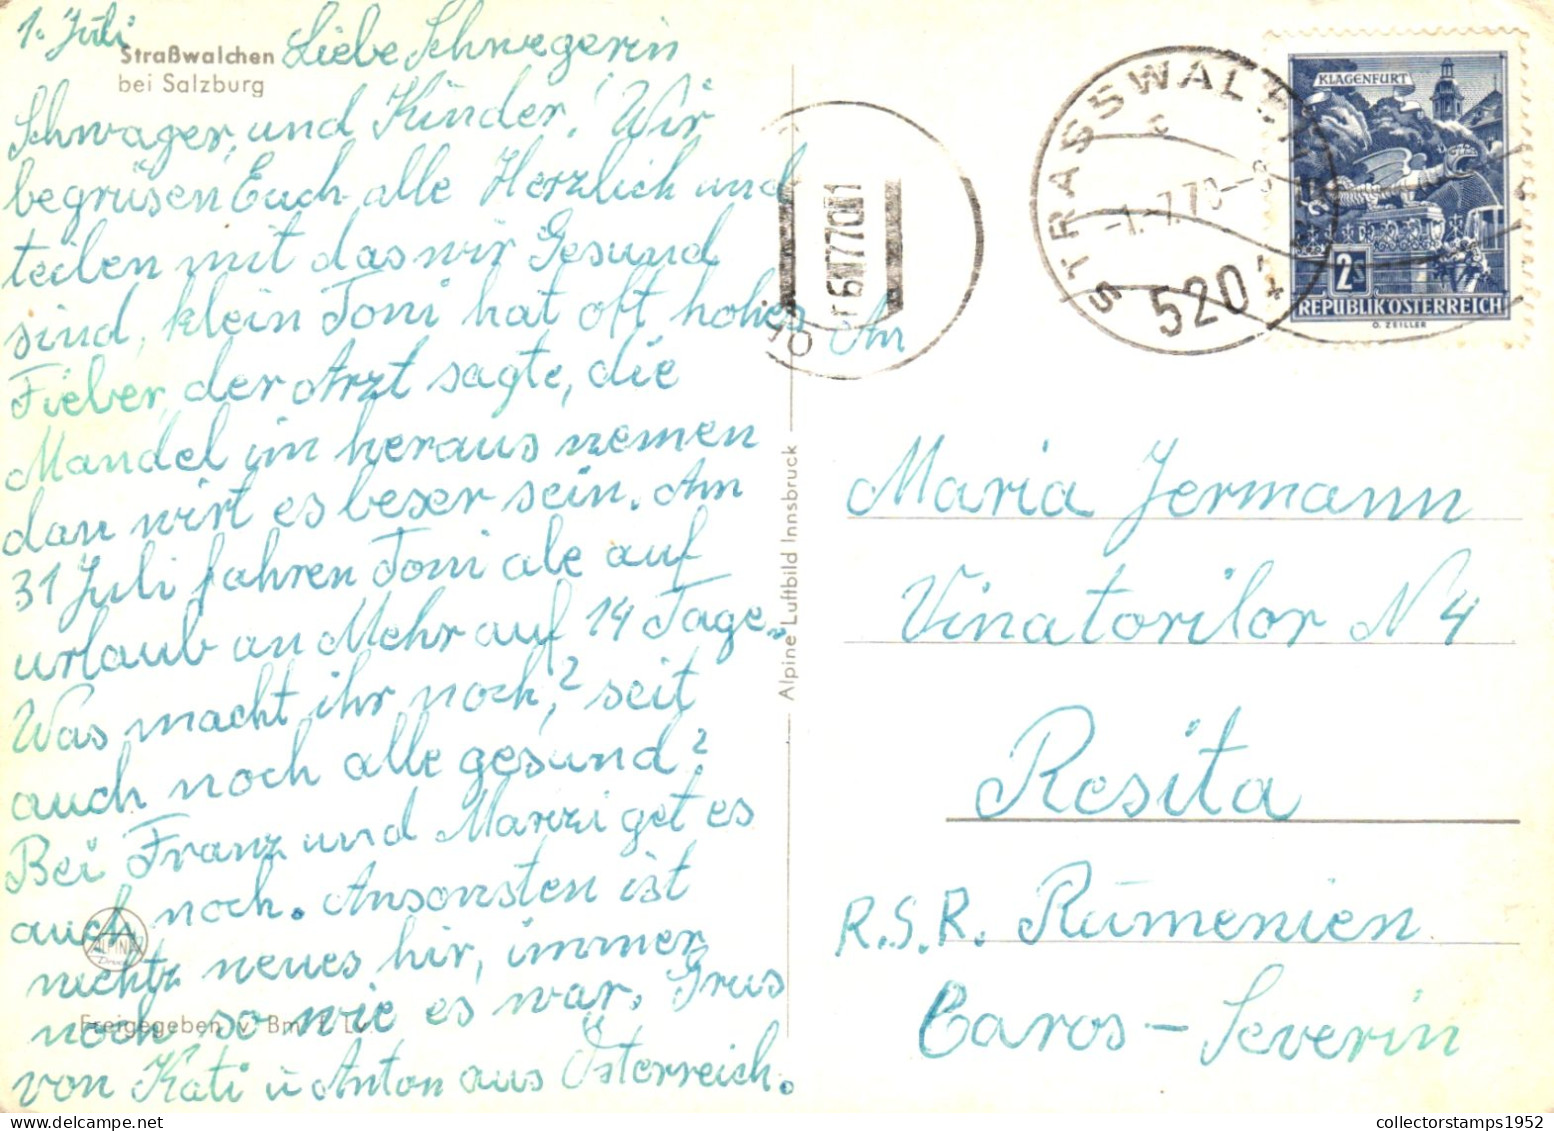 1. Juli
Straßwalchen
bei Salzburg
Liebe Schwegerin
Schwager, und Kinder! Wir
begrüsen Euch alle Herzlich und
teilen mit das wir Gesund
sind, klein Toni hat oft hohes
Fieber, der Arzt sagte, die
Mandel im heraus nemen
dan wirt es beser sein. Am
31 Juli fahren Toni ale auf
urlaub an Mehr auf 14 Tage.
Was macht ihr noch,? seit
auch noch alle gesund?
Bei Franz und Marzi get es
auch noch. Ansonsten ist
nichtz neues hir, immer
noch so wie es war. Grus
von Kati u Anton aus Österreich.
ALPINE
Druck
Freigegeben v. Bm f. Lv
Alpine Luftbild Innsbruck
-6 VII 70 11
STRASSWALCHEN
c
-1.-7.70--8
5204
KLAGENFURT
2S
REPUBLIK ÖSTERREICH
O. ZEILLER
An
Maria Jermann
Vinatorilor N 4
Resita
R.S.R. Rümenien
Caros – Severin
collectorstamps1952